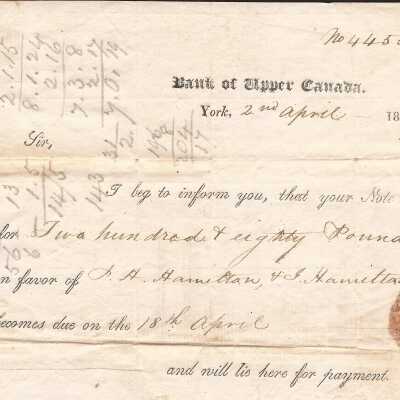 No 445
Bank of Upper Canada.
York, 2nd April 18
Sir,
I beg to inform you, that your Note
for Two hundred & eighty Pound
n favor of J. H. Hamilton, & J. Hamilto
becomes due on the 18th April
and will lie here for payment.
2.1.15
8.1.24
2.16
7.3.8
2.17
7.0.19